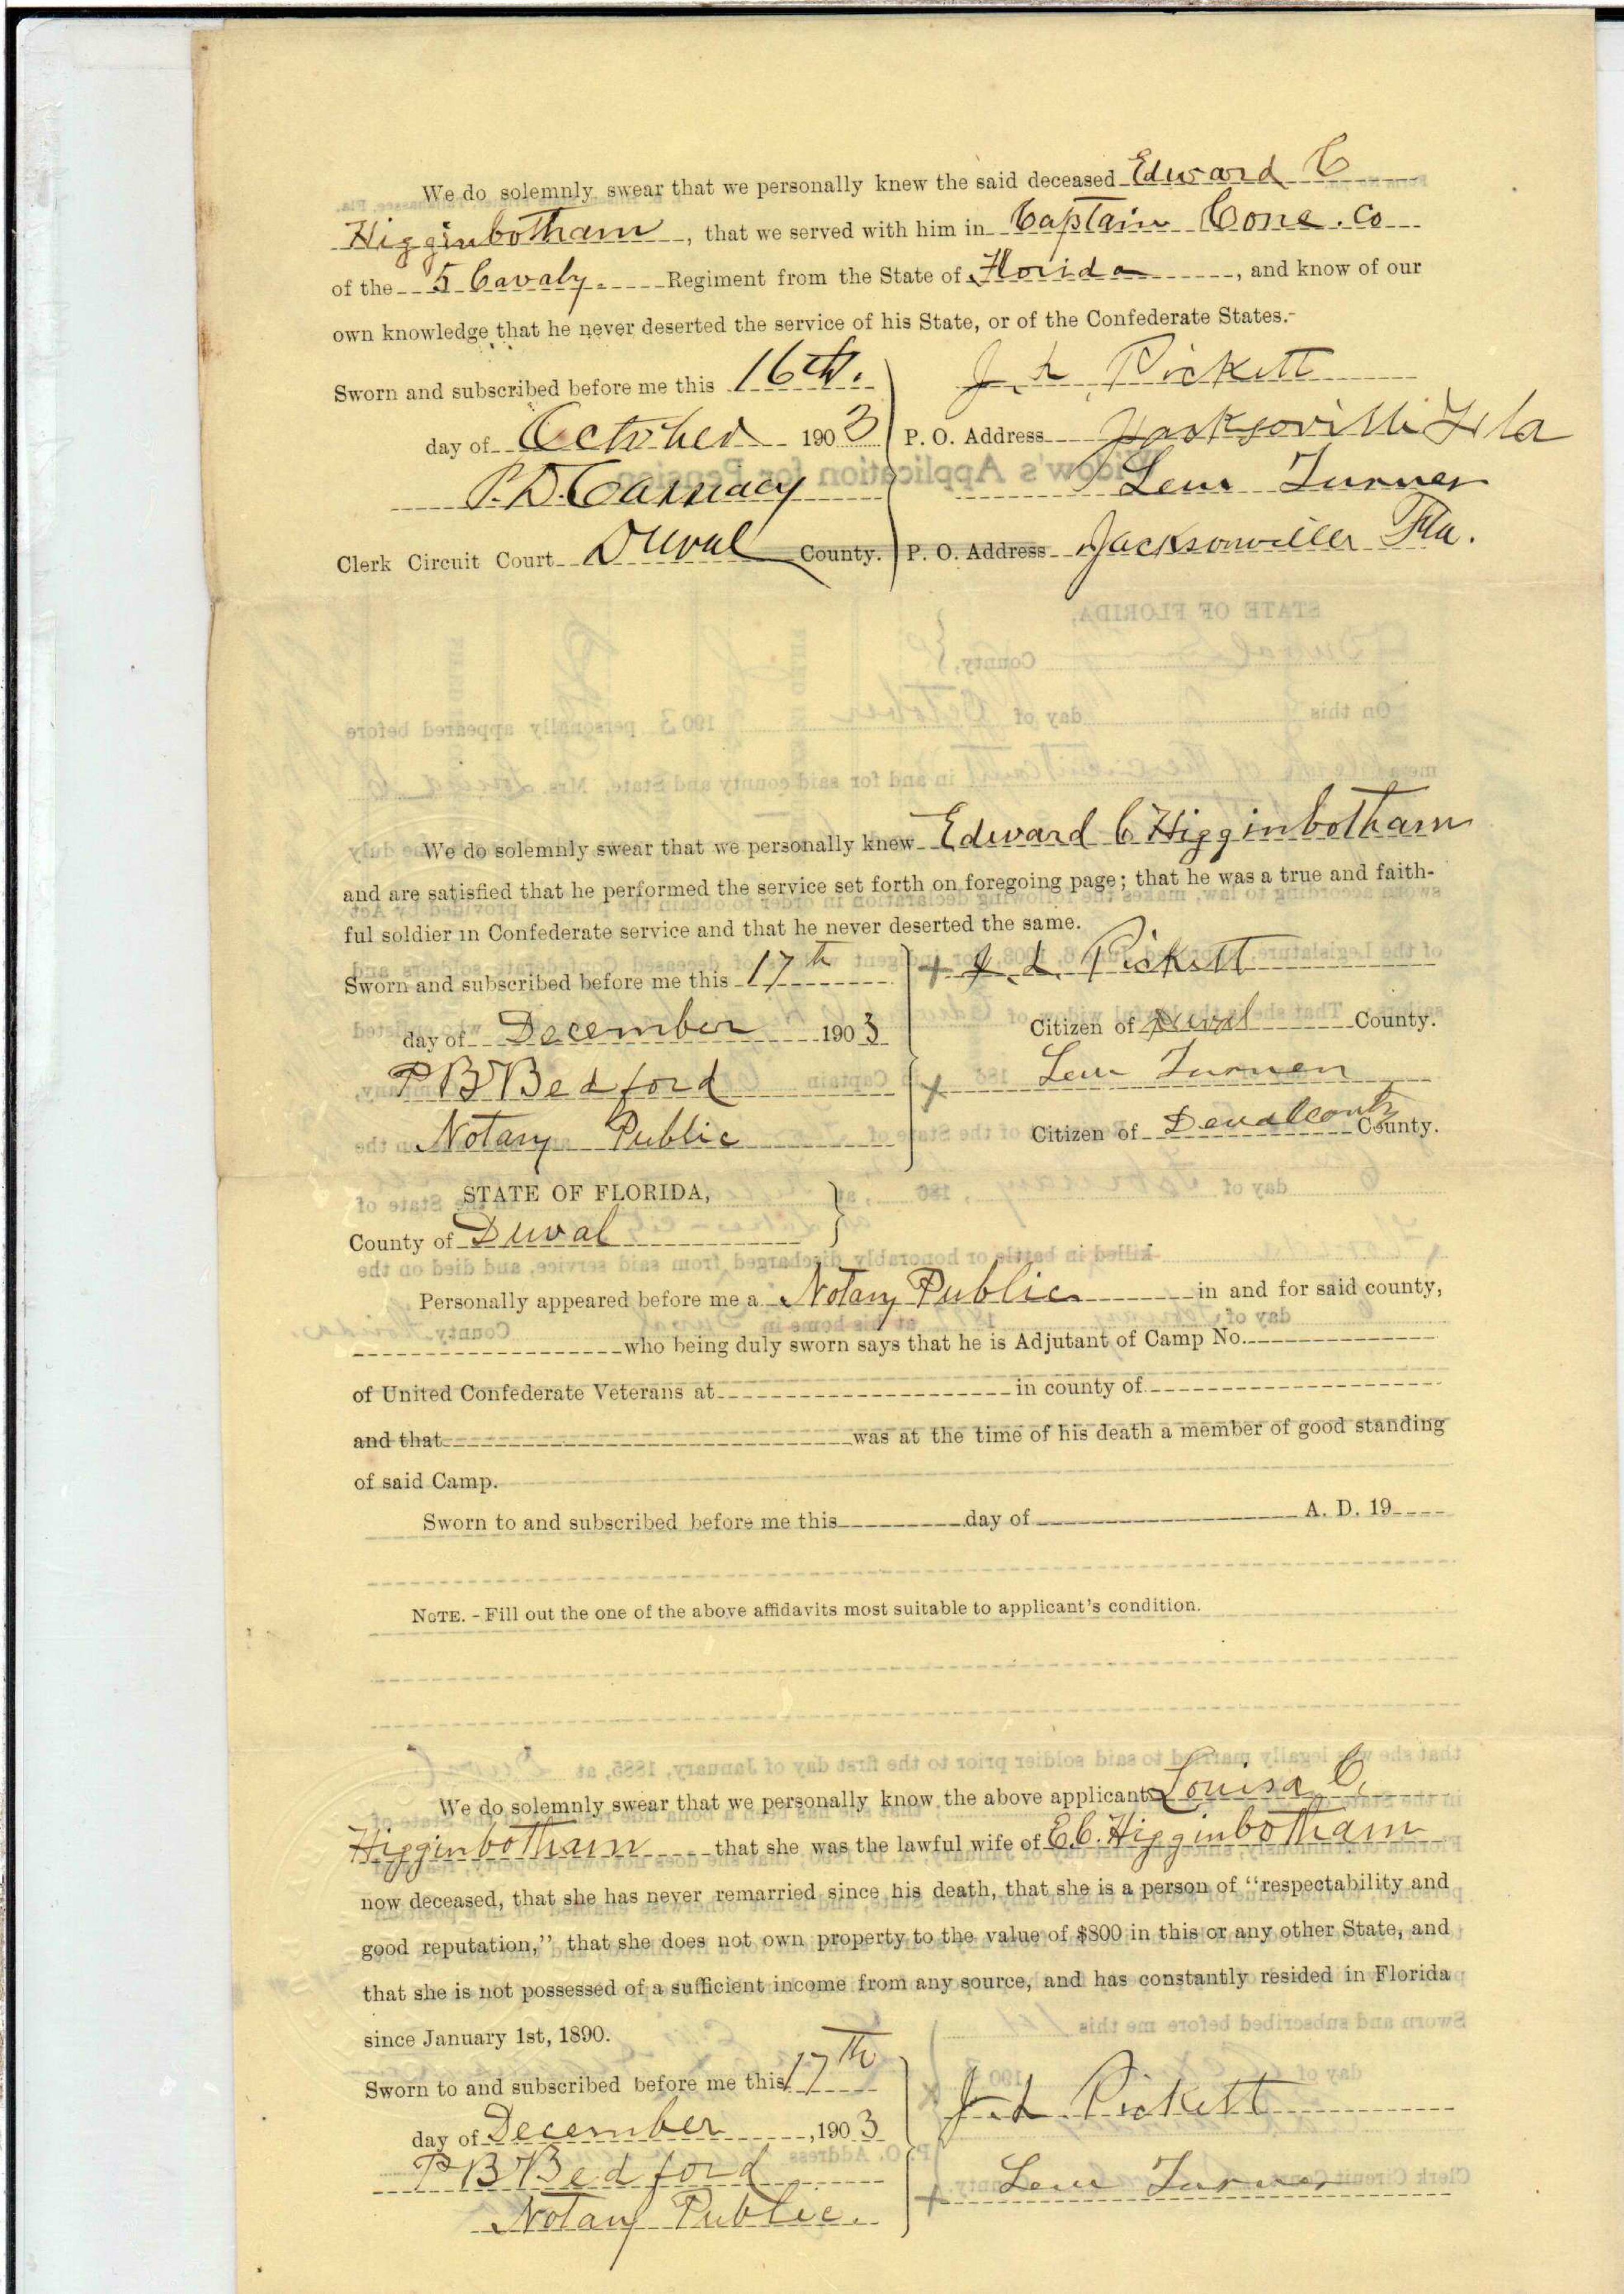 We do solemnly swear that we personally knew the said deceased Edward C
Higginbotham, that we served with him in Captain Cone. Co
of the 5 Cavaly. Regiment from the State of Florida, and know of our
own knowledge that he never deserted the service of his State, or of the Confederate States.
Sworn and subscribed before me this 16th.
day of October 1903
P. D. Cassidey
Clerk Circuit Court Duval County.
J. L. Pickett
P. O. Address Jacksonvill Fla
Lem Turner
P. O. Address Jacksonviller Fla.
Widow's Application for Pension
STATE OF FLORIDA,
Duval County,
On this day of October 1903 personally appeared before
We do solemnly swear that we personally knew Edward C Higginbotham
and are satisfied that he performed the service set forth on foregoing page; that he was a true and faith-
ful soldier in Confederate service and that he never deserted the same.
Sworn and subscribed before me this 17th
day of December 1903
P B Bedford
Notary Public
J. L. Pickett
Citizen of Duval County.
Lem Turner
Citizen of Duval County County.
STATE OF FLORIDA,
County of Duval
Personally appeared before me a Notary Public in and for said county,
who being duly sworn says that he is Adjutant of Camp No.
of United Confederate Veterans at in county of
and that was at the time of his death a member of good standing
of said Camp.
Sworn to and subscribed before me this day of A. D. 19
NOTE. - Fill out the one of the above affidavits most suitable to applicant's condition.
We do solemnly swear that we personally know the above applicant Louisa C.
Higginbotham that she was the lawful wife of E.C. Higginbotham
now deceased, that she has never remarried since his death, that she is a person of "respectability and
good reputation," that she does not own property to the value of $800 in this or any other State, and
that she is not possessed of a sufficient income from any source, and has constantly resided in Florida
since January 1st, 1890.
Sworn to and subscribed before me this 17th
day of December, 1903
P B Bedford
Notary Public.
J. L. Pickett
Lem Turner